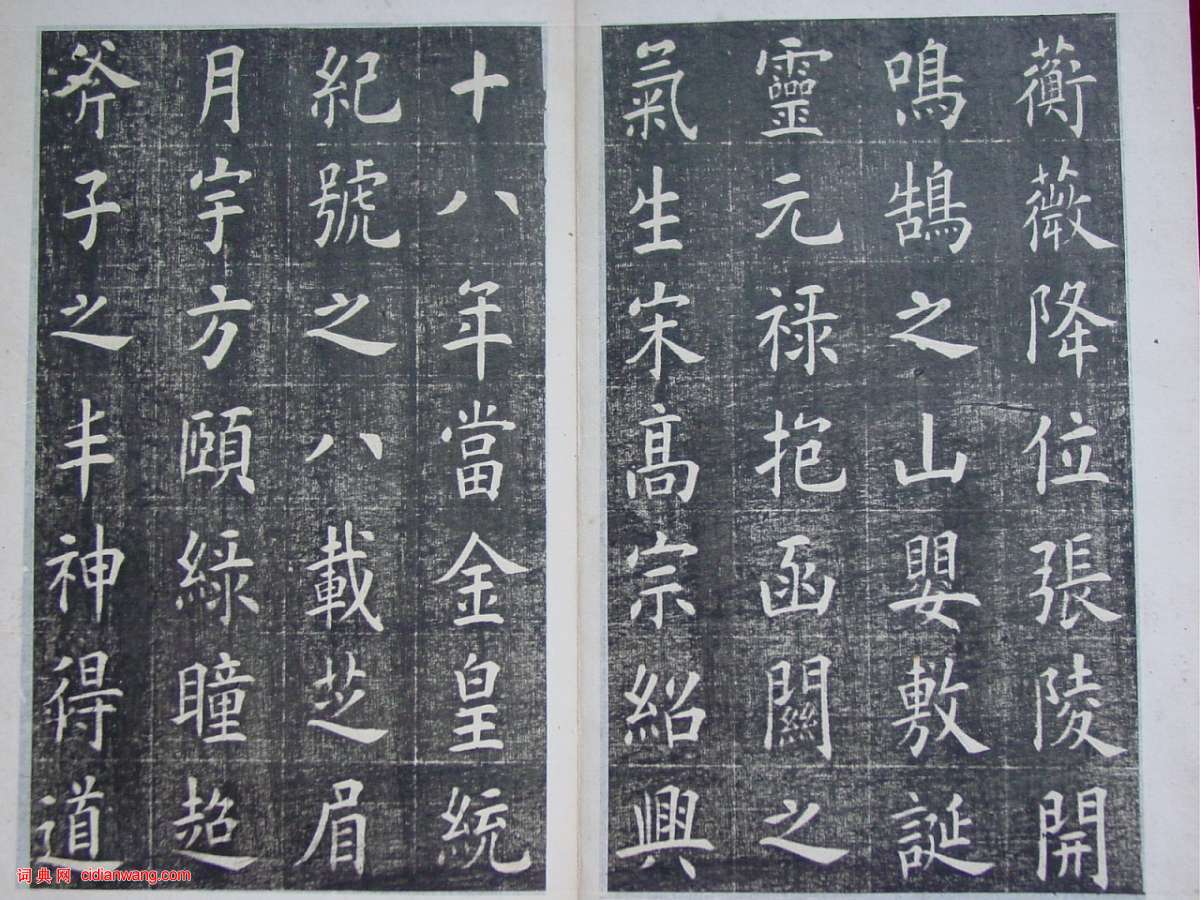 蘅薇降位張陵開
鳴鵠之山嬰敷誕
靈元禄抱函關之
氣生宋髙宗紹興
十八年當金皇統
紀號之八載芝眉
月宇方頤緑瞳超
斧子之丰神得道
词典网 cidianwang.com